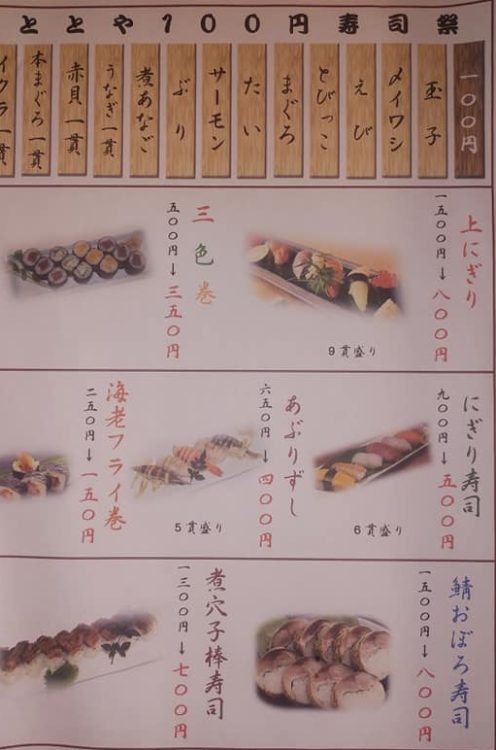 ととや100円寿司祭
一〇〇円
玉子
〆イワシ
えび
とびっこ
まぐろ
たい
サーモン
ぶり
煮あなご
うなぎ一貫
赤貝一貫
本まぐろ一貫
イクラ一貫
上にぎり
一五〇〇円→八〇〇円
9貫盛り
三色巻
五〇〇円→三五〇円
にぎり寿司
九〇〇円→五〇〇円
6貫盛り
あぶりずし
六五〇円→四〇〇円
5貫盛り
海老フライ巻
二五〇円→一五〇円
鯖おぼろ寿司
一五〇〇円→八〇〇円
煮穴子棒寿司
一三〇〇円→七〇〇円